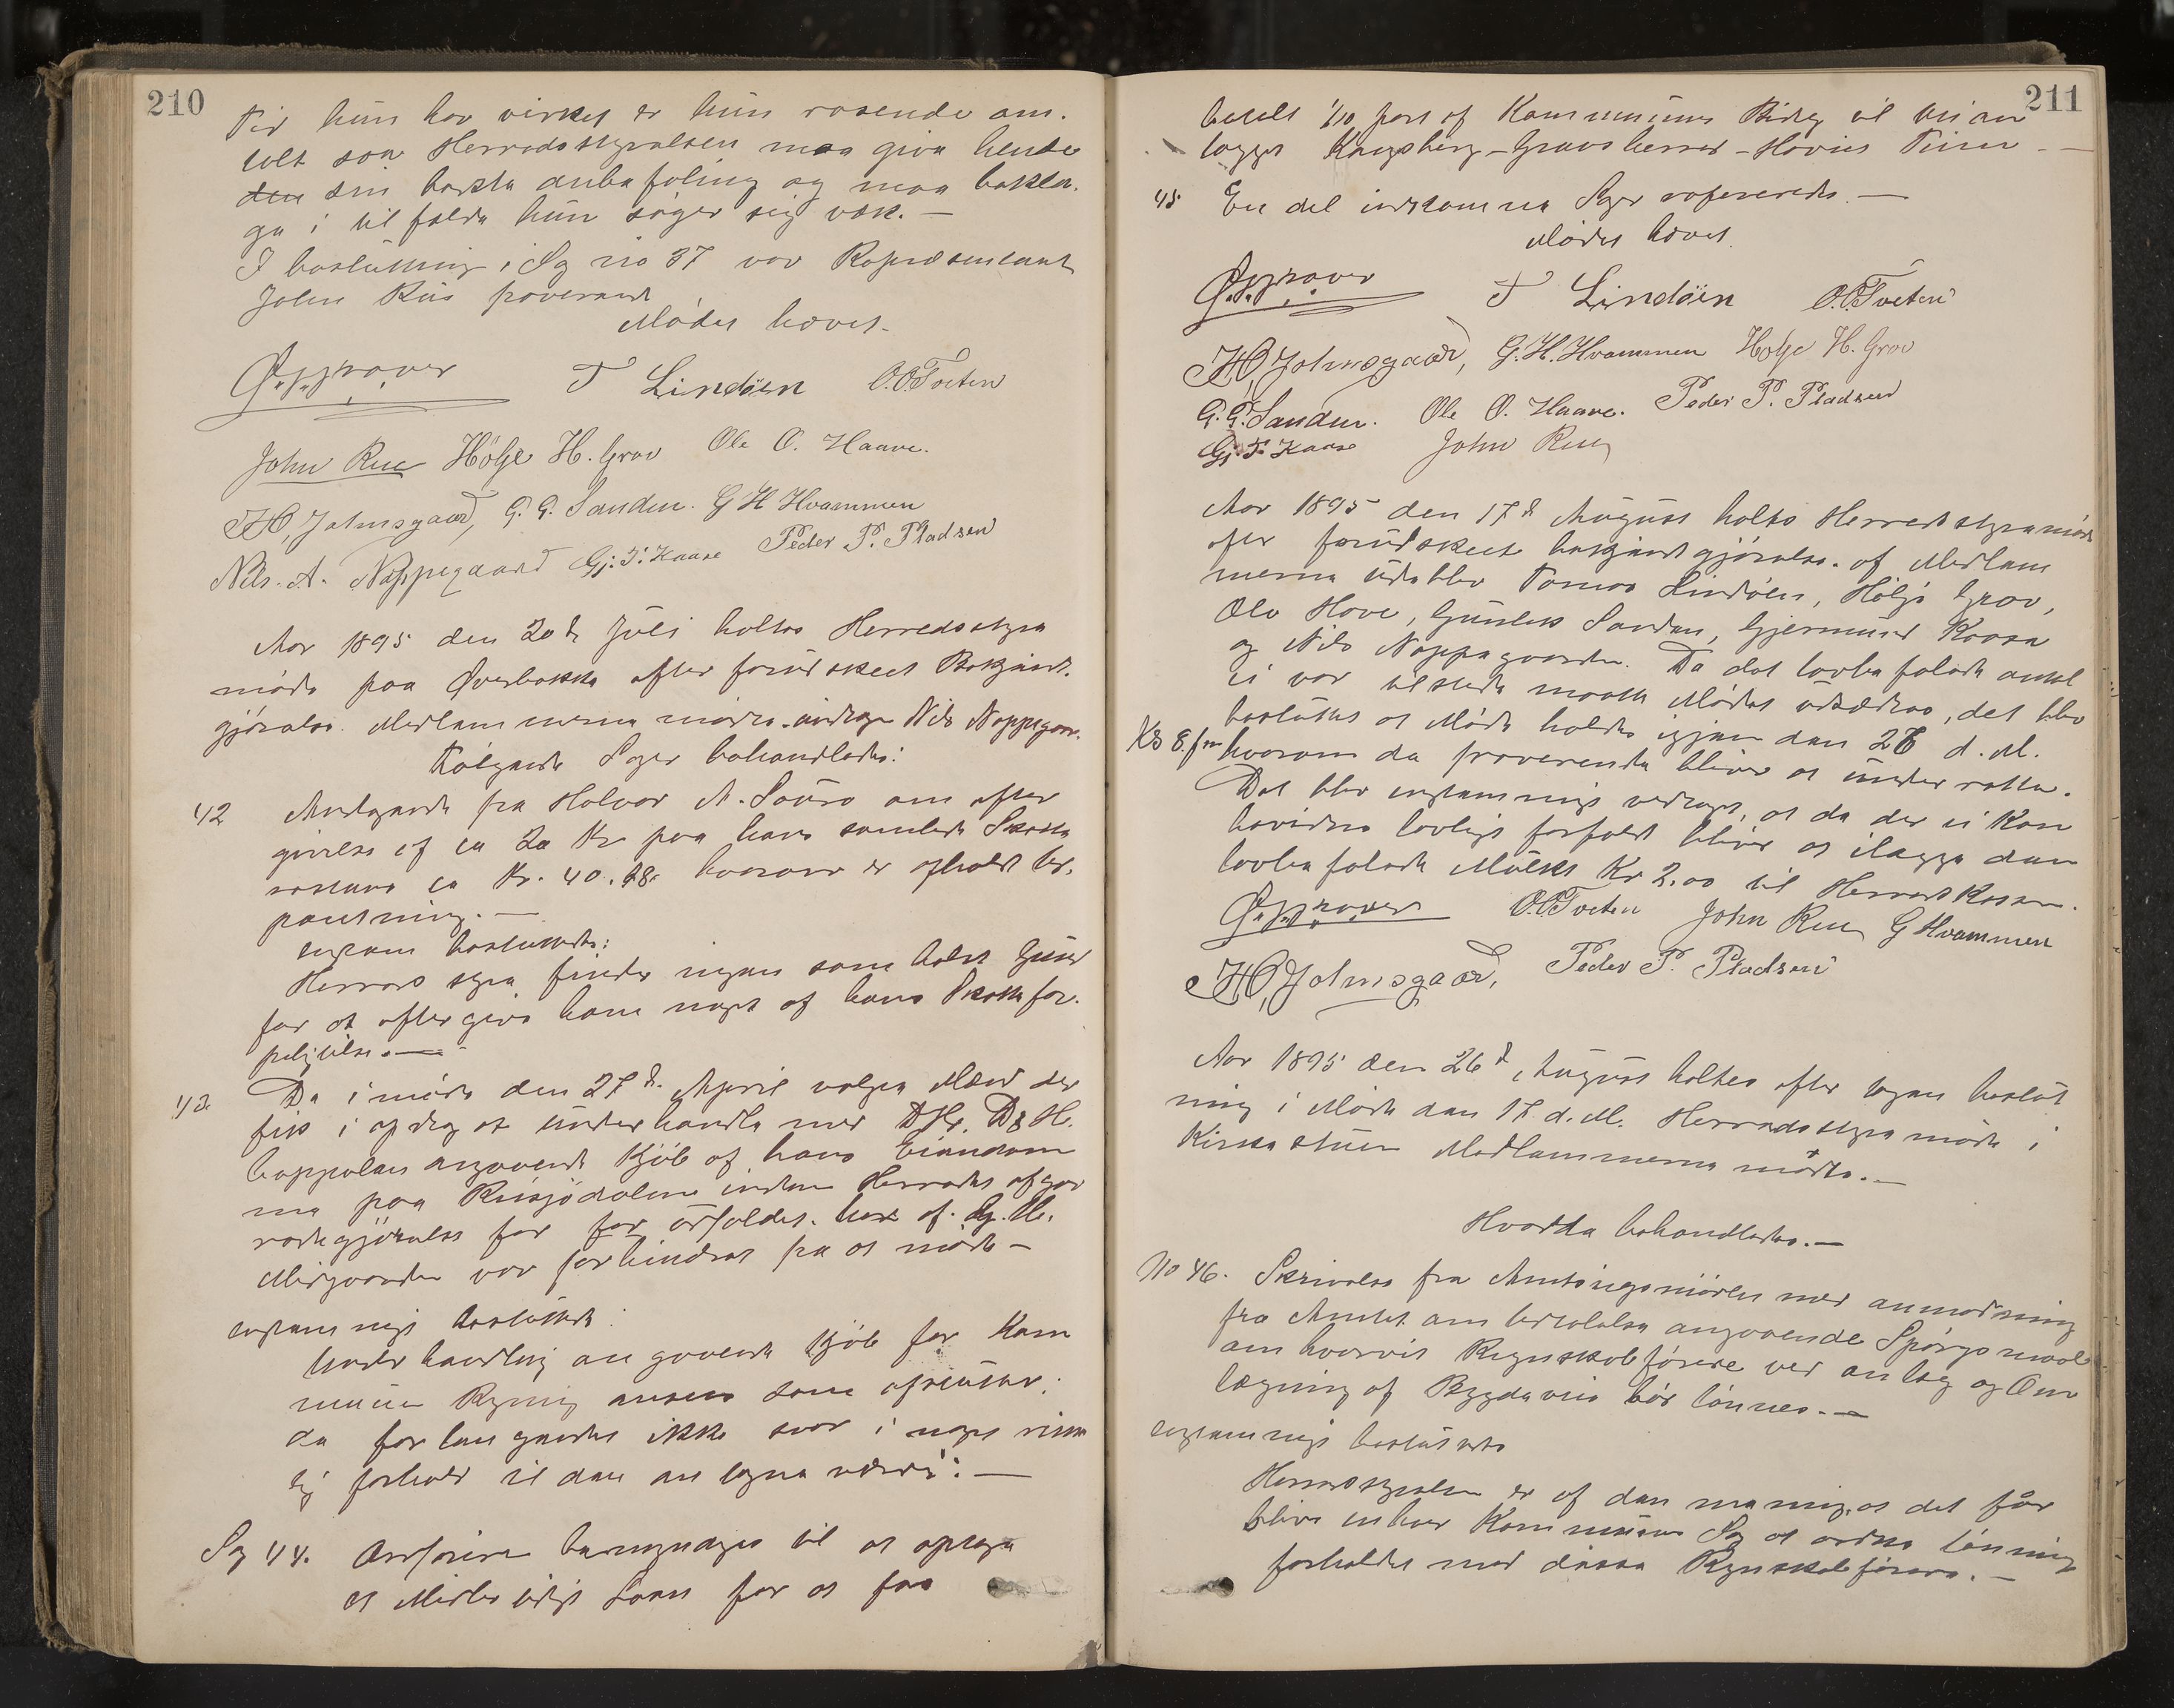 210
Tid hun har virket er hun rosende om.
talt saa Herredsstyrelsen maa give hende
den sin bedste anbefaling og maa bekla.
ge i til fælde hun søger sig væk. —
I beslutning i Sag no 37 var Repræsentant
John Rue fraverende
Mödet hævet.
T Lindöen O.O.Tveten
John Rue Hölje H. Grov Ole O. Haave.
H, Jolmsgaard, G. G. Sanden. G H Hvammen
Nils. A. Noppegaard Gj. T. Kaase Peder P. Pladsen
Aar 1895 den 20de Juli holtes Herredsstyre
möde paa Øverbekke efter forudskeet Bekjændt.
gjörelse. Medlemmerne mödte undtagen Nils Noppgaar.
Fölgende Sager behandledes:
42 Andragende fra Halvor N. om efter
givelse af ca 20 Kr paa hans samlede Skatte
restanse ca Kr. 40.98. hvorom er afholdt Ud.
pantning. —
enstem besluttedes:
Herreds styre finder ingen som helst Grund
for at eftergive ham noget af hans Skattefor.
pligtelse. —
43 Da i möde den 27de April valgte Mænd der
fik i opdrag at underhandle med DHr. D & H.
Cappelen angaaende Kjöb af hans Eiendom
me paa Rusjödalene inden Herredet afgav
redegjörelse for
Midgaarden var forhindret fra at möde —
enstemmigt besluttedes:
Underhandling angaaende Kjöb for Kom
munens Regning ansees som afsluttet,
da forlangendet ikke staar i noget rime
lig forhold til den antagne værdi: —
Sag 44. Ordföreren bemyndiges til at optage
et Midlertidigt Laan for at faa
211
betalt 1/10 part af Kommunens Bidrag til Veian
lægget Kongsberg – Gransherred – Hovin Tinn —
45 En del indkomne Sager refereredes. —
Mödet hævet.
T Lindöen O.O.Tveten
H, Jolmsgaard, G. H. Hvammen Holje H. Grov
G. G. Sanden. Ole O. Haave. Peder P. Pladsen
Gj. T. Kaase John Rue
Aar 1895 den 17de August holtes Herredsstyremöde
efter forudskeet bekjændtgjörelse. af Medlem
merne udeblev Tomas Lindöen, Höljo Grov,
Ole Hove, Gunleik Sanden, Gjermund Kaase
og Nils Noppegaarden. Da det lovbefalede antal
ei var tilstede maatte Mödet udsættes, det blev
besluttet at Möde holdes igjen den 26 d. M.
Kl 8 fm hvorom da fraverende bliver at underrette.
Det blev enstemmigt vedtaget, at da der ei kan
bevidnes lovligt forfald bliver at ilægge den
lovbefalede Mulkt Kr 2.00 til Herredskassen.
O.O.Tveten John Rue G Hvammen
H, Jolmsgaard, Peder P. Pladsen
Aar 1895 den 26de August holtes efter tagen beslut
ning i Möde den 17. d. M. Herredsstyremöde i
Kirkestuen Medlemmerne mödte. —
Hvorda behandledes. —
No 46. Skrivelse fra Amtsingeniören med anmodning
fra Amtet om udtalelse angaaende Spörgsmaal
om hvorvidt Regnskabsförere ved anlæg og Om
lægning af Bygdeveie bör lönnes. —
enstemmigt besluttedes
Herredsstyrelsen er af den mening, at det får
blive enhver Kommunes Sag at ordne lönnings
forholdet med disse Regnskabsförere. —